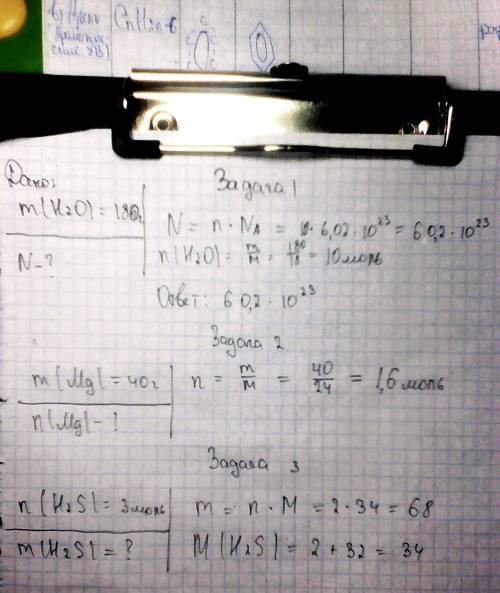 б) Арены
CnH2n-6
Задача 1
Дано:
m(H2O) = 180г
N-?
N = n · NA = 10 · 6,02 · 10²³ = 60,2 · 10²³
n(H2O) = m/M = 180/18 = 10 моль
Ответ: 60,2 · 10²³
Задача 2
m(Mg) = 40г
n(Mg) - ?
n = m/M = 40/24 = 1,6 моль
Задача 3
n(H2S) = 3 моль
m(H2S) = ?
m = n · M = 2 · 34 = 68
M(H2S) = 2 + 32 = 34